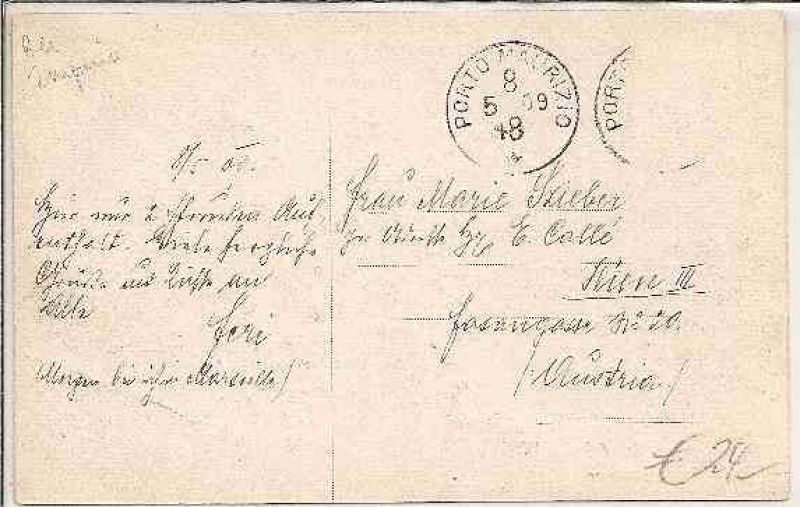 PORTO MAURIZIO
8
5 09
18
PORT
8/5 09.
Hier nur 2 Stunden Auf-
enthalt. Viele herzliche
Grüße und Küsse an
Alle
(Morgen bin ich in Marseille)
Frau Marie Stieber
E. Callé
Wien III
Fasangasse No 20.
(Austria)
€ 24